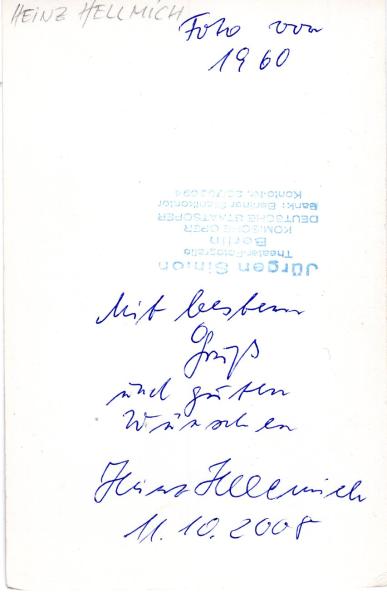 HEINZ HELLMICH
Foto von
1960
Jürgen Simon
Theater-Fotografie
Berlin
KOMISCHE OPER
DEUTSCHE STAATSOPER
Bank: Berliner Stadtkontor
Mit bestem
Gruß
und guten
Wünschen
Heinz Hellmich
11.10.2008